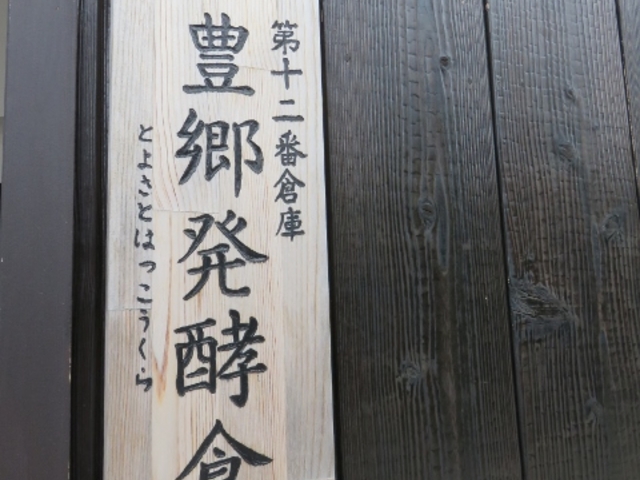 第十二番倉庫
豊郷発酵倉
とよさとはっこうくら